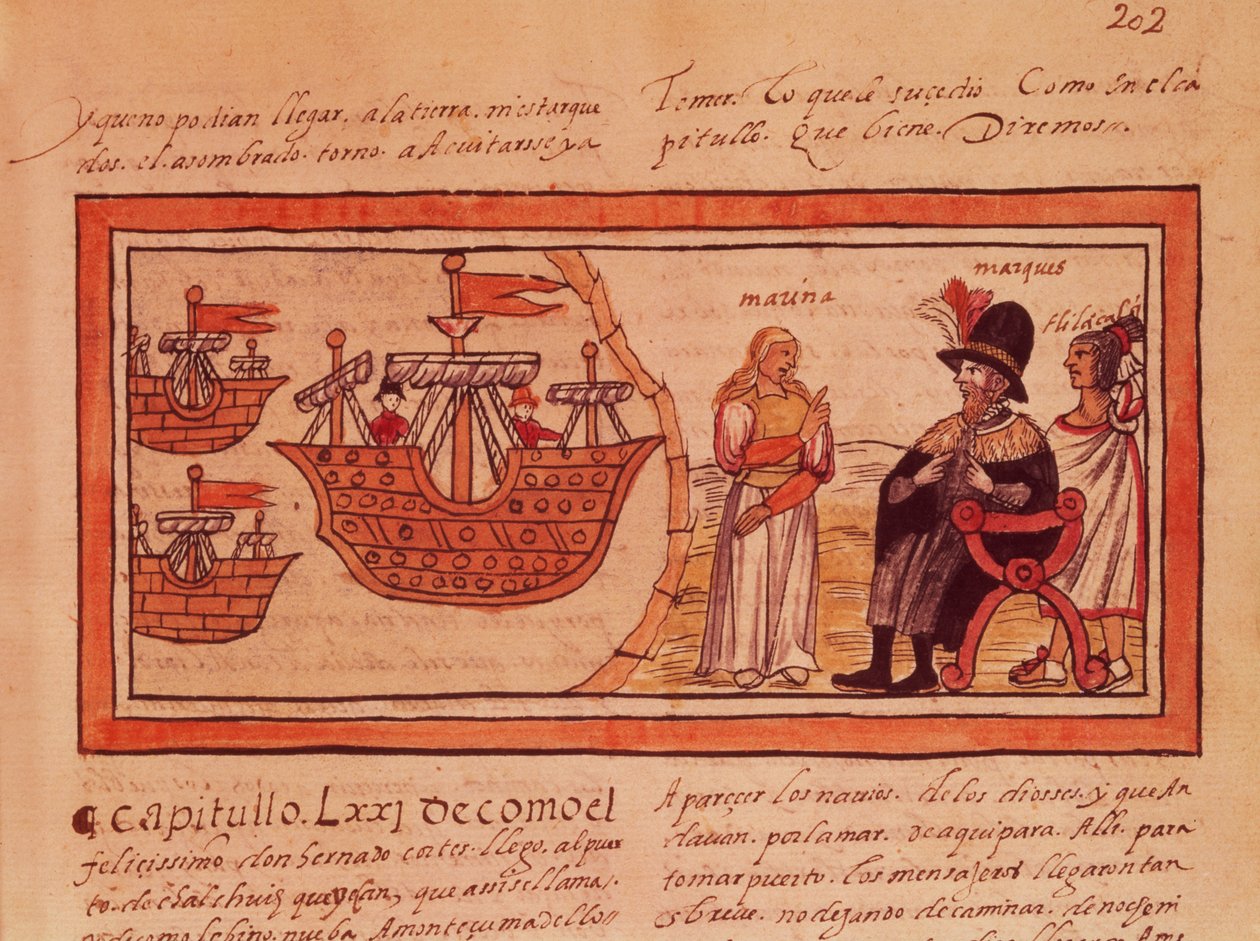 202
y que no podian llegar, a la tierra. mi estar que
dos. el asombrado. torno. a Acuitarsse ya
Temer. Lo que le sucedio. Como En el ca
pitullo. Que biene. Diremos.
marina
marques
tlilācalq
capitullo. Lxxj de como el
feliçissimo don hernādo cortes. llego. al puer
to. de chalchuiq queyecan, que assi se llama.
Apareçer los nauios. de los diosses. y que An
dauan. por la mar. de aqui para. Alli. para
tomar puerto. Los mensajeros llegaron tan
breue. no dejando de caminar. de noche ni